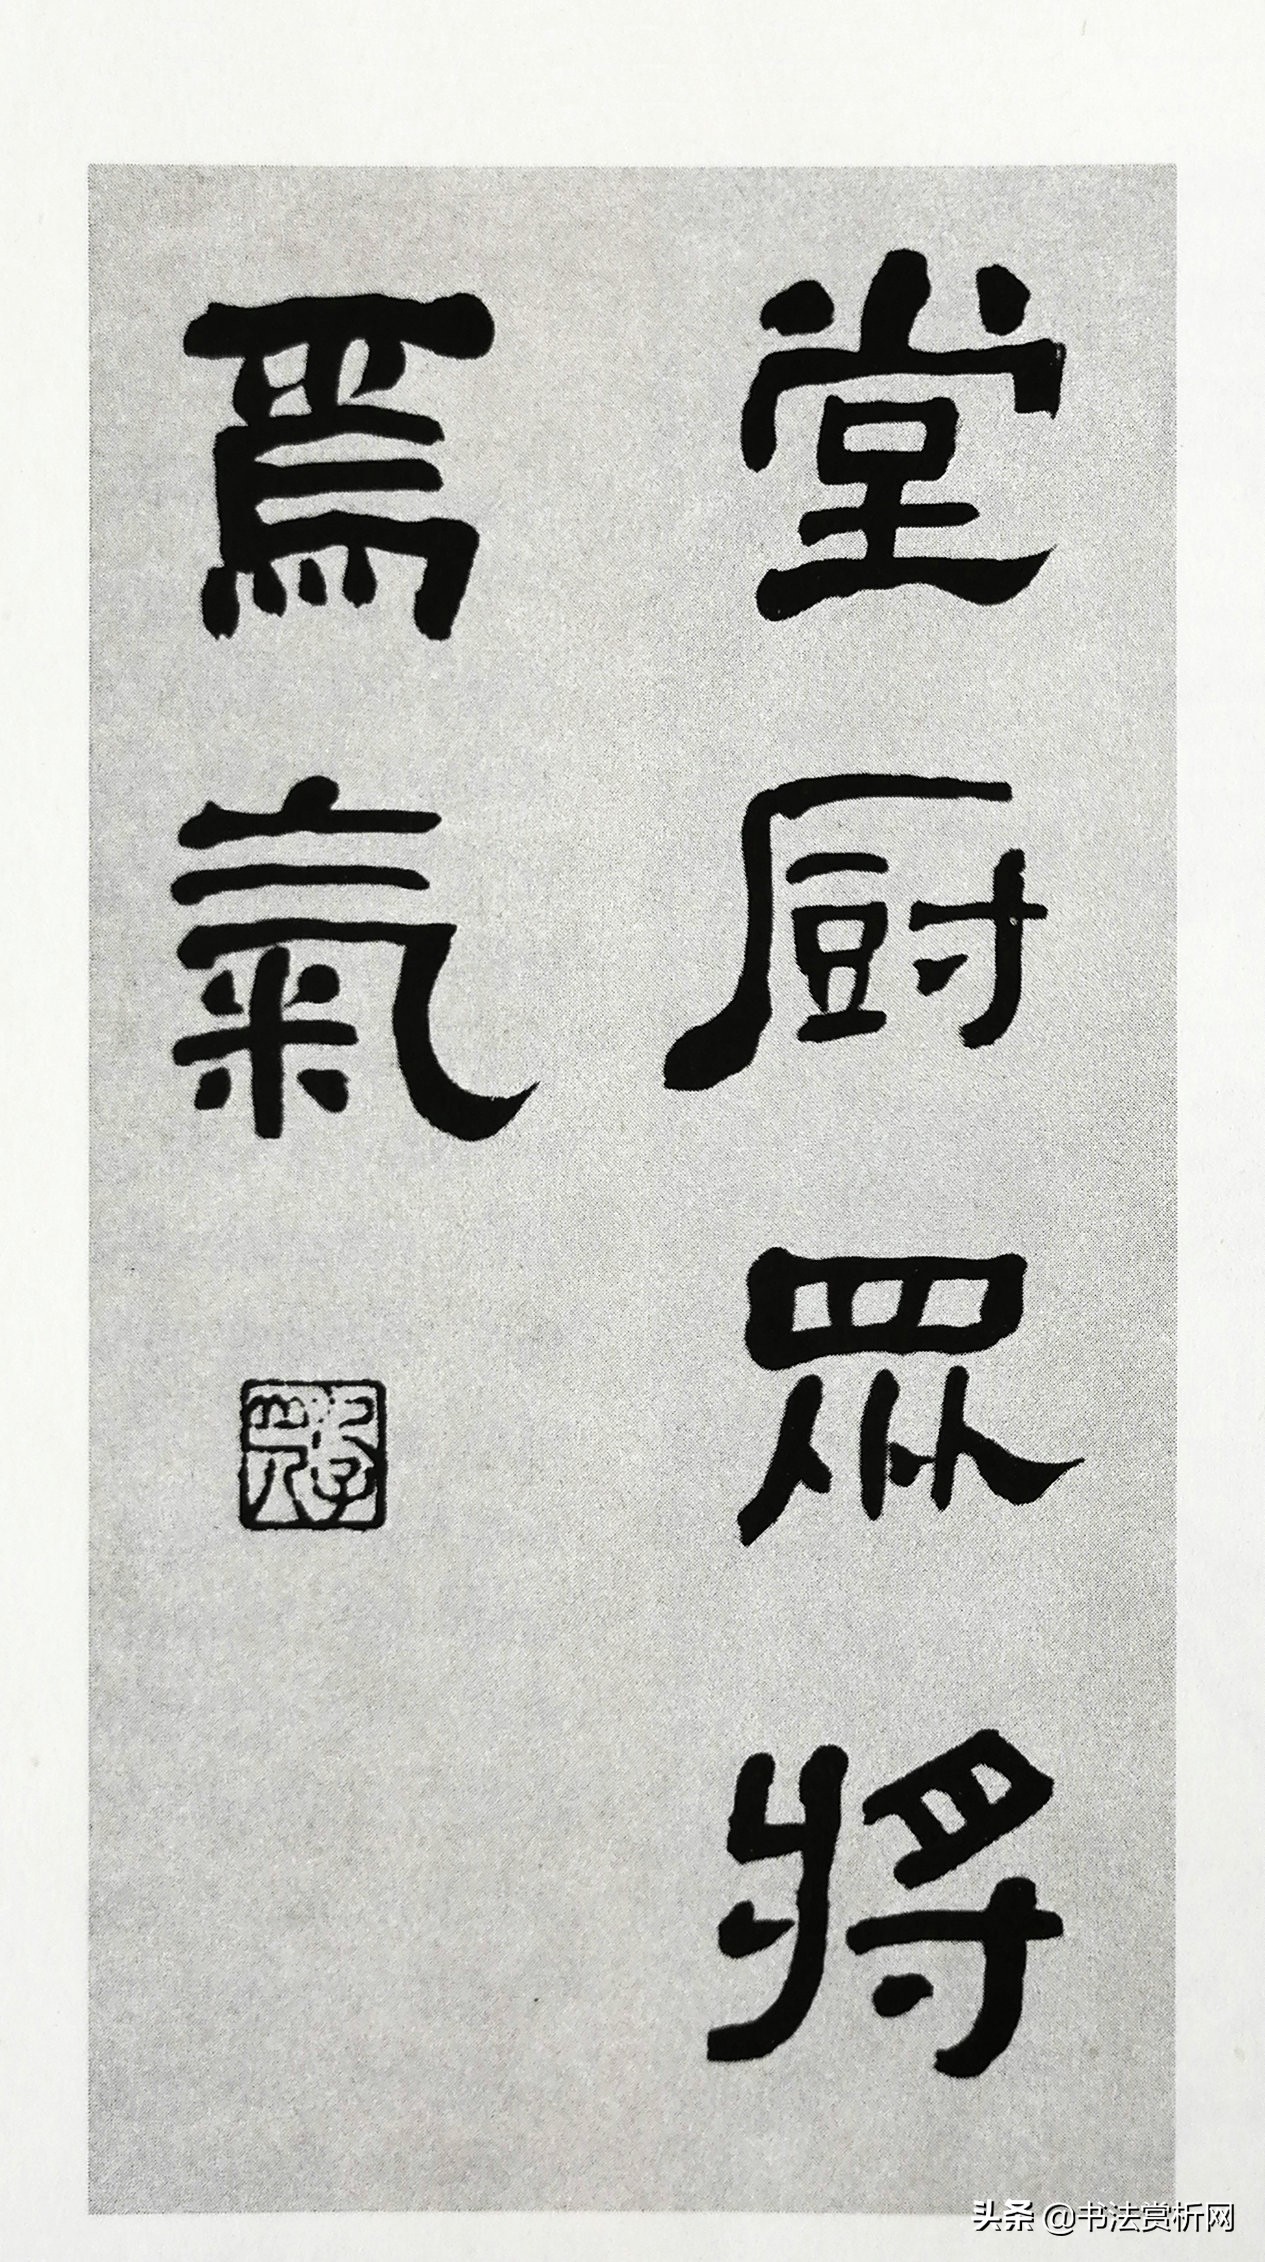 堂厨眾將
焉氣
头条 @书法赏析网